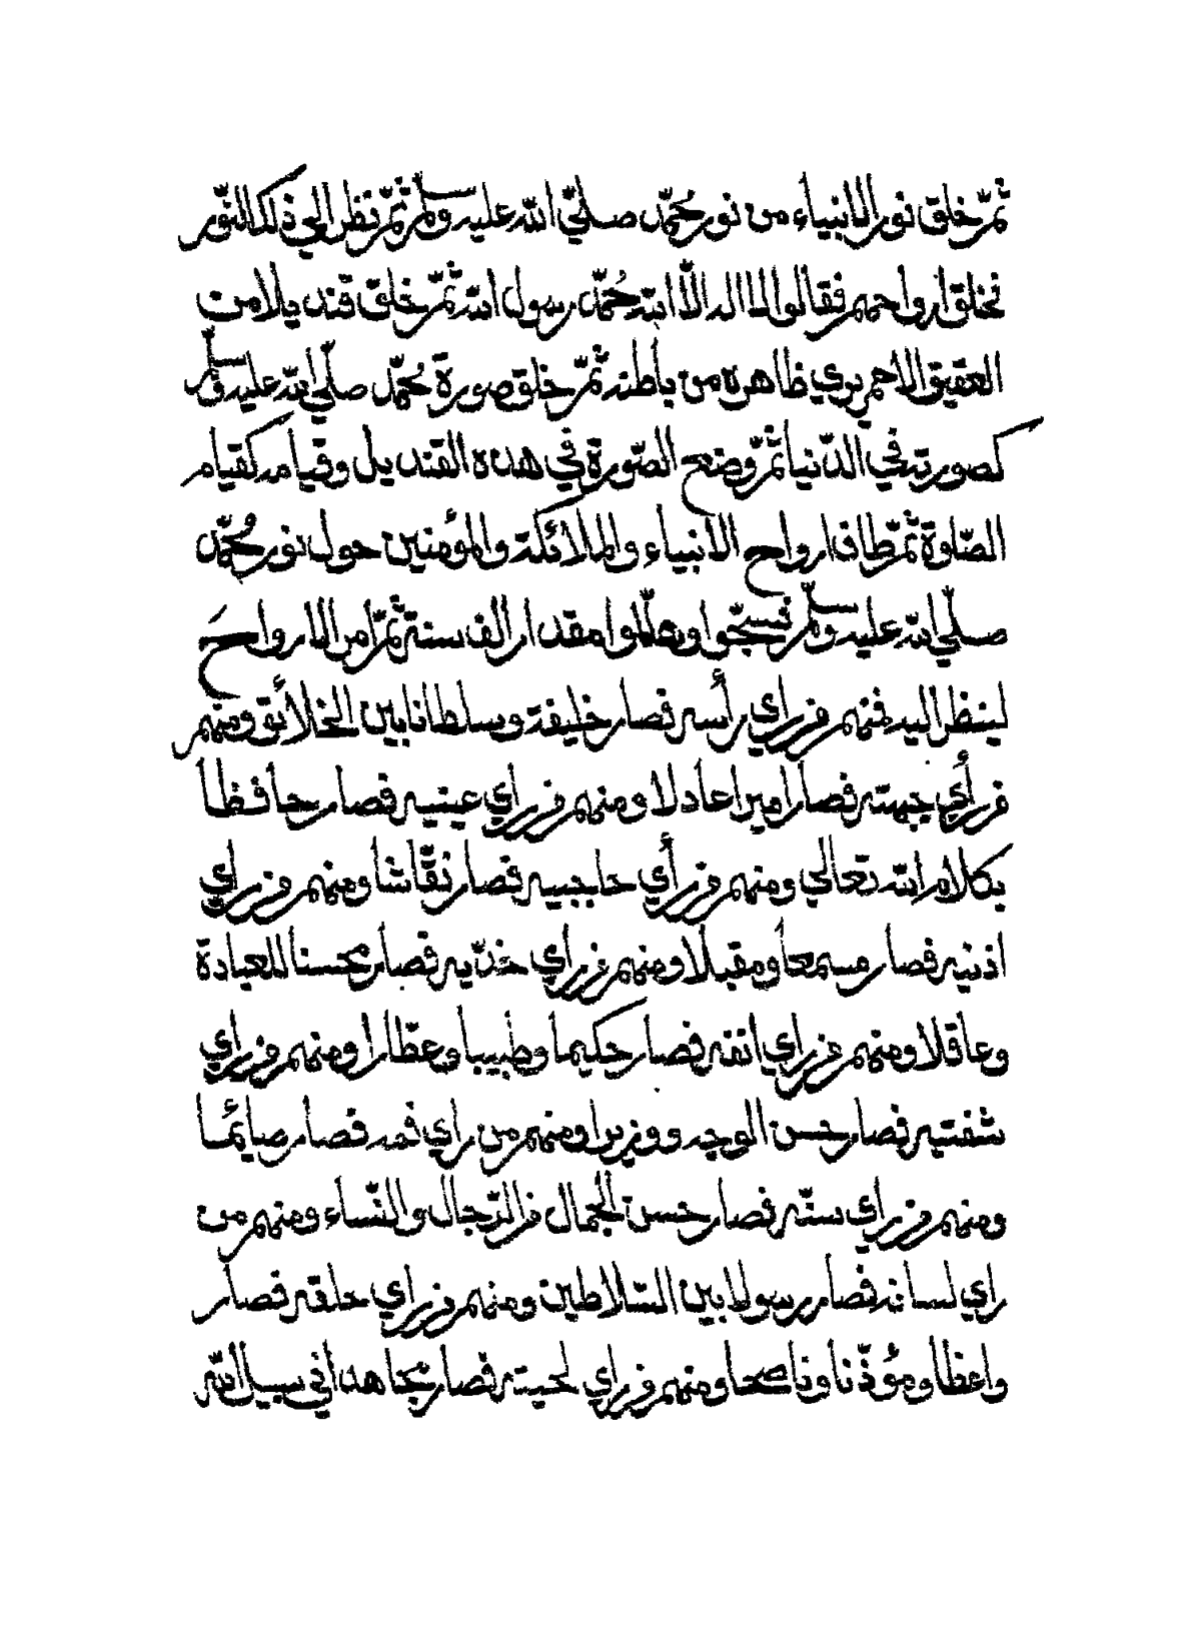 ثمّ خلق نور الانبياء من نور محمّد صلّي الله عليه وسلّم ثمّ نظر الي ذلك النّور
فخلق ارواحهم فقالوا لا اله الّا الله محمّد رسول الله ثمّ خلق قنديلا من
العقيق الاحمر يري ظاهره من باطنه ثمّ خلق صورة محمّد صلّي الله عليه وسلّم
كصورته في الدّنيا ثمّ وضع الصّورة في هذه القنديل وقيامه كقيام
الصّلوة ثمّ طاف ارواح الانبياء والملائكة والمؤمنين حول نور محمّد
صلّي الله عليه وسلّم فسبّحوا وهلّلوا مقدار الف سنة ثمّ امر الارواح
لينظر اليه فمنهم من راي رأسه فصار خليفة وسلطانا بين الخلائق ومنهم
من رأي جبهته فصار اميرا عادلا ومنهم من راي عينيه فصار حافظا
بكلام الله تعالي ومنهم من رأي حاجبيه فصار نقّاشا ومنهم من راي
اذنيه فصار مسمعا ومقبلا ومنهم من راي خدّيه فصار محسنا للعبادة
وعاقلا ومنهم من راي انفه فصار حكيما وطبيبا وعطّارا ومنهم من راي
شفتيه فصار حسن الوجه ووزيرا ومنهم من راي فمه فصار صائما
ومنهم من راي سنّه فصار حسن الجمال من الرّجال والنّساء ومنهم من
راي لسانه فصار رسولا بين السّلاطين ومنهم من راي حلقه فصار
واعظا ومؤذّنا وناصحا ومنهم من راي لحيته فصار مجاهدا في سبيل الله